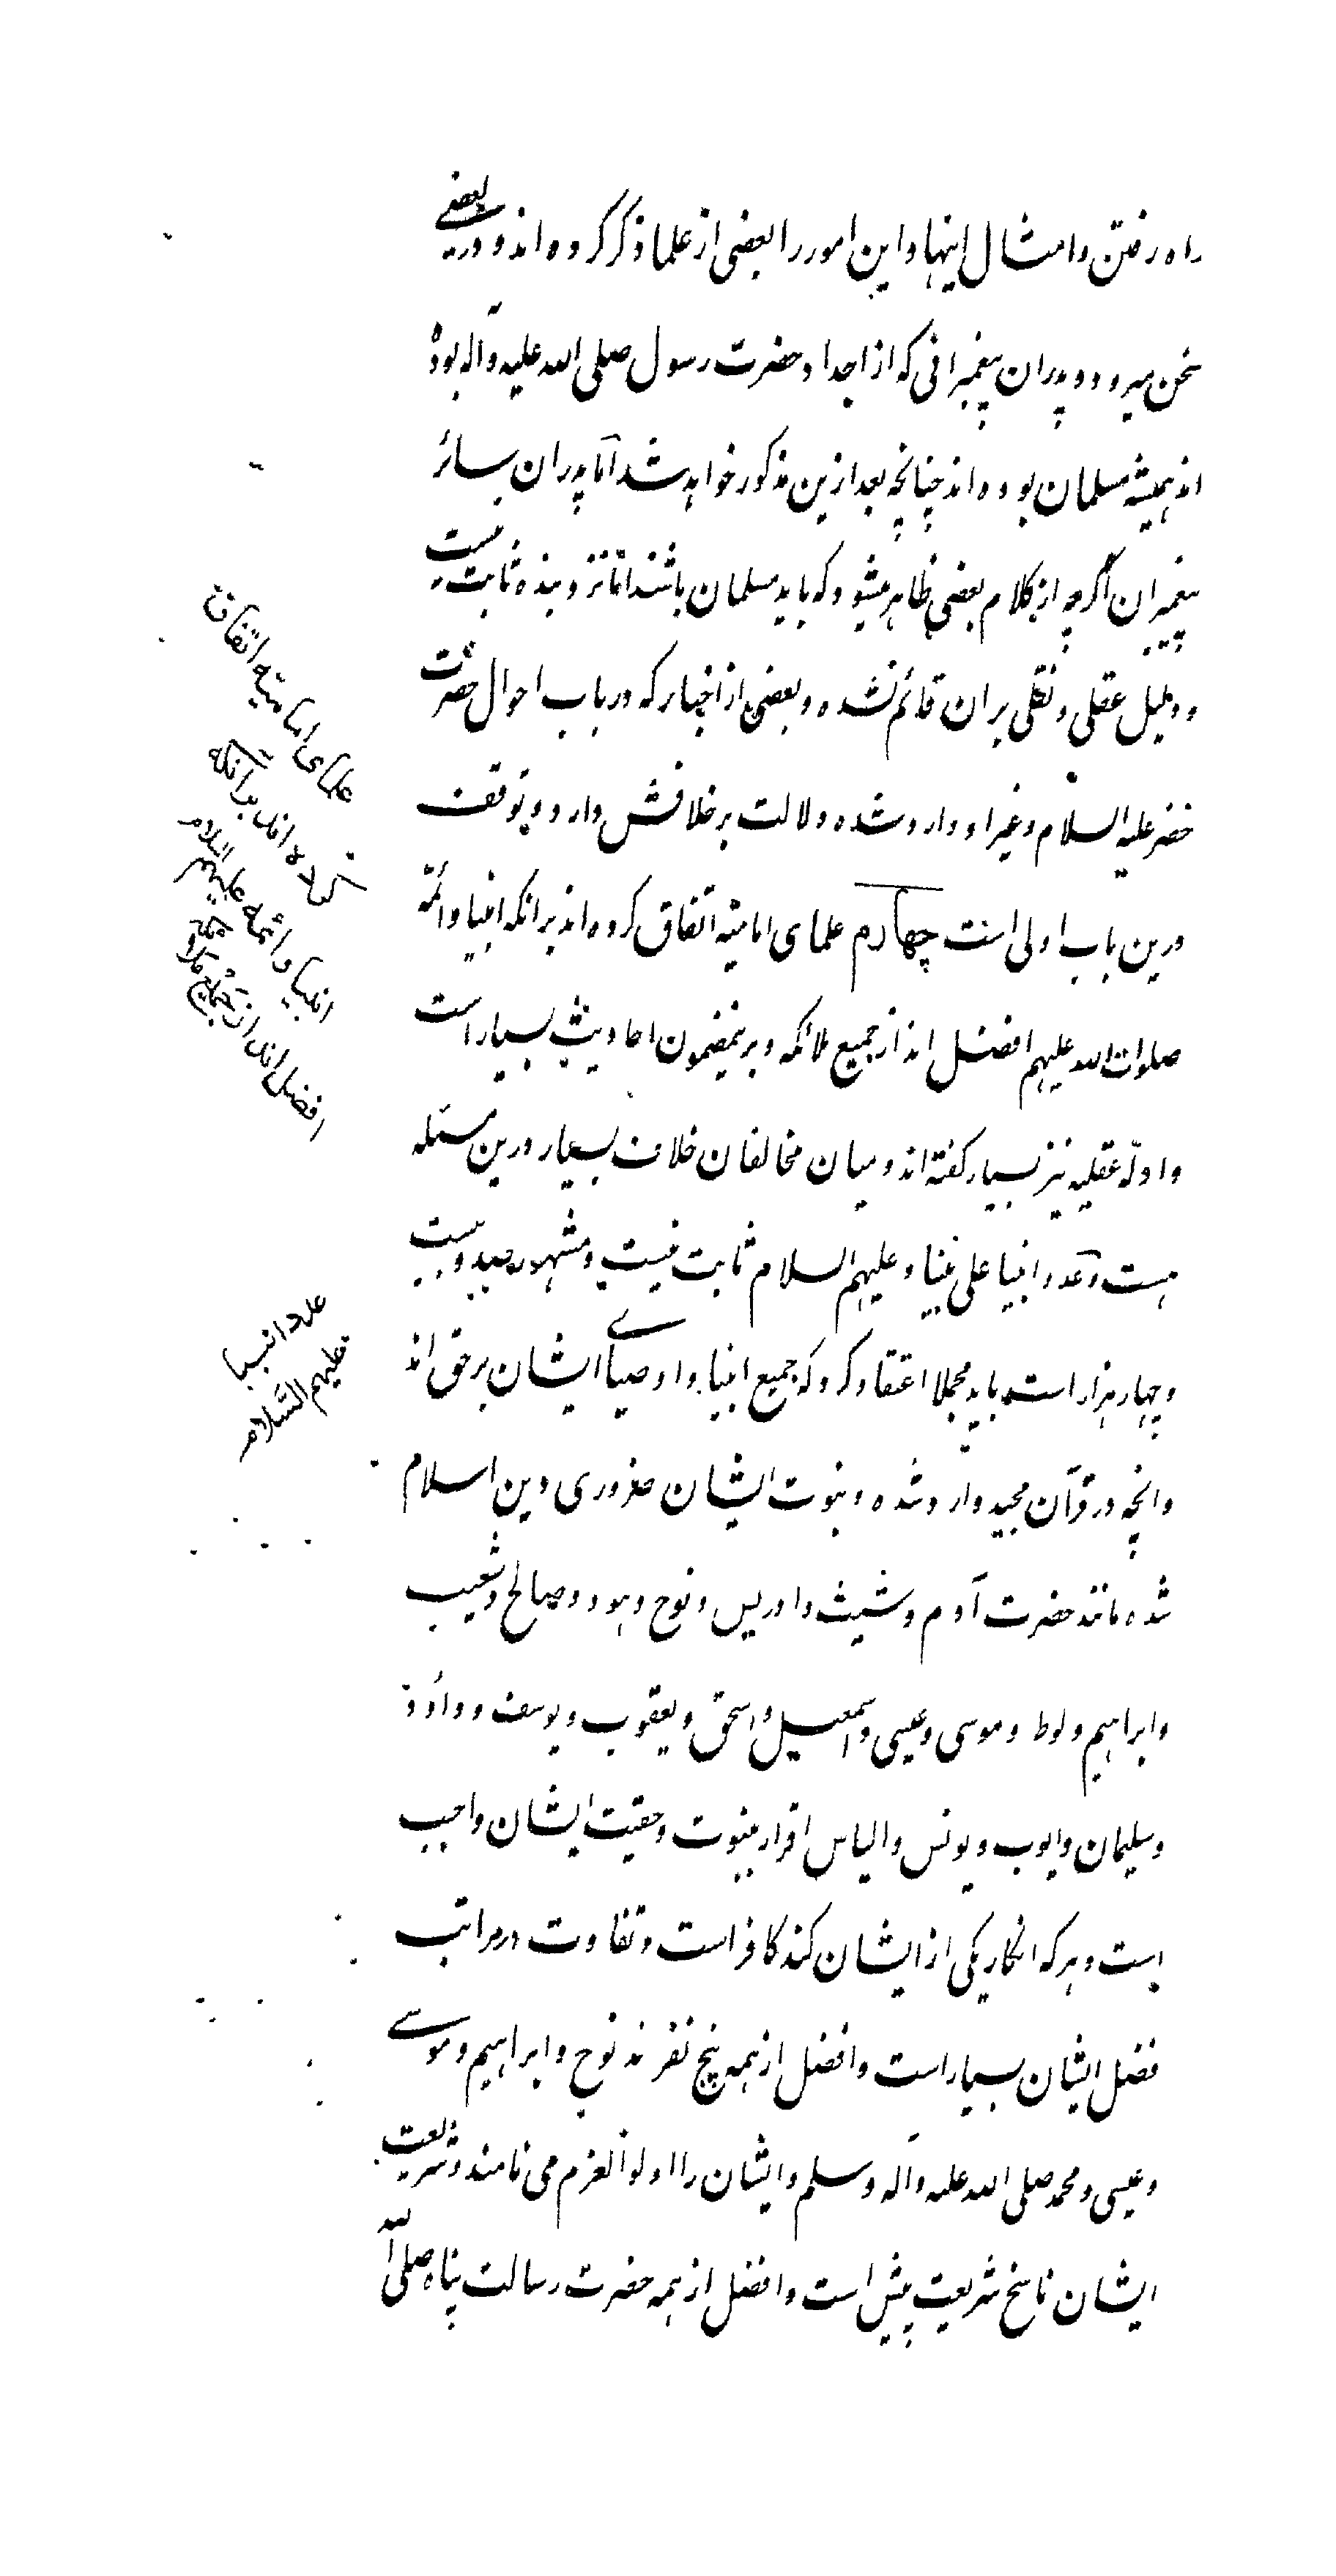 راه رفتن و امثال اینها و این امور را بعضی از علما ذکر کرده اند و در بعضے
سخن میرود و پدران پیغمبرانی که از اجداد حضرت رسول صلی الله علیه و آله بوده
اند همیشه مسلمان بوده اند چنانچه بعد ازین مذکور خواهد شد اما پدران سائر
پیغمبران اگرچه از کلام بعضی ظاهر میشود که باید مسلمان باشند اما نزد بنده ثابت نیست
و دلیل عقلی و نقلی بران قائم نشده و بعضی از اخبار که در باب احوال حضرت
خضر علیه السلام و غیر او وارد شده دلالت بر خلافش دارد و توقف
درین باب اولی است چهارم علمای امامیّه اتفاق کرده اند برانکه انبیا و ائمّه
صلوات الله علیهم افضل اند از جمیع ملائکه و برینمضمون احادیث بسیار است
و ادلّه عقلیه نیز بسیار گفته اند و میان مخالفان خلاف بسیار درین مسئله
هست و عدد انبیا علی نبینا و علیهم السلام ثابت نیست و مشهور صد و بیست
و چهار هزار است باید مجملا اعتقاد کرد که جمیع انبیا و اوصیاے ایشان بر حق اند
و انچه در قرآن مجید وارد شده و نبوت ایشان ضروری دین اسلام
شده مانند حضرت آدم و شیث و ادریس و نوح و هود و صالح و شعیب
و ابراهیم و لوط و موسی و عیسی و اسمعیل و اسحق و یعقوب و یوسف و داؤد
و سلیمان و ایوب و یونس و الیاس اقرار بنبوت و حقیت ایشان واجب
است و هر که انکار یکی از ایشان کند کافر است و تفاوت در مراتب
فضل ایشان بسیار است و افضل از همه پنج نفرند نوح و ابراهیم و موسے
و عیسی و محمد صلی الله علیه و آله و سلم و ایشان را اولوالعزم می نامند و شریعت
ایشان ناسخ شریعت پیش است و افضل از همه حضرت رسالت پناه صلی الله
علمای امامیّه اتفاق
کرده اند برانکه
انبیا و ائمه علیهم السّلام
افضل اند از جمیع ملائکه
عدد انبیا
علیهم السّلام